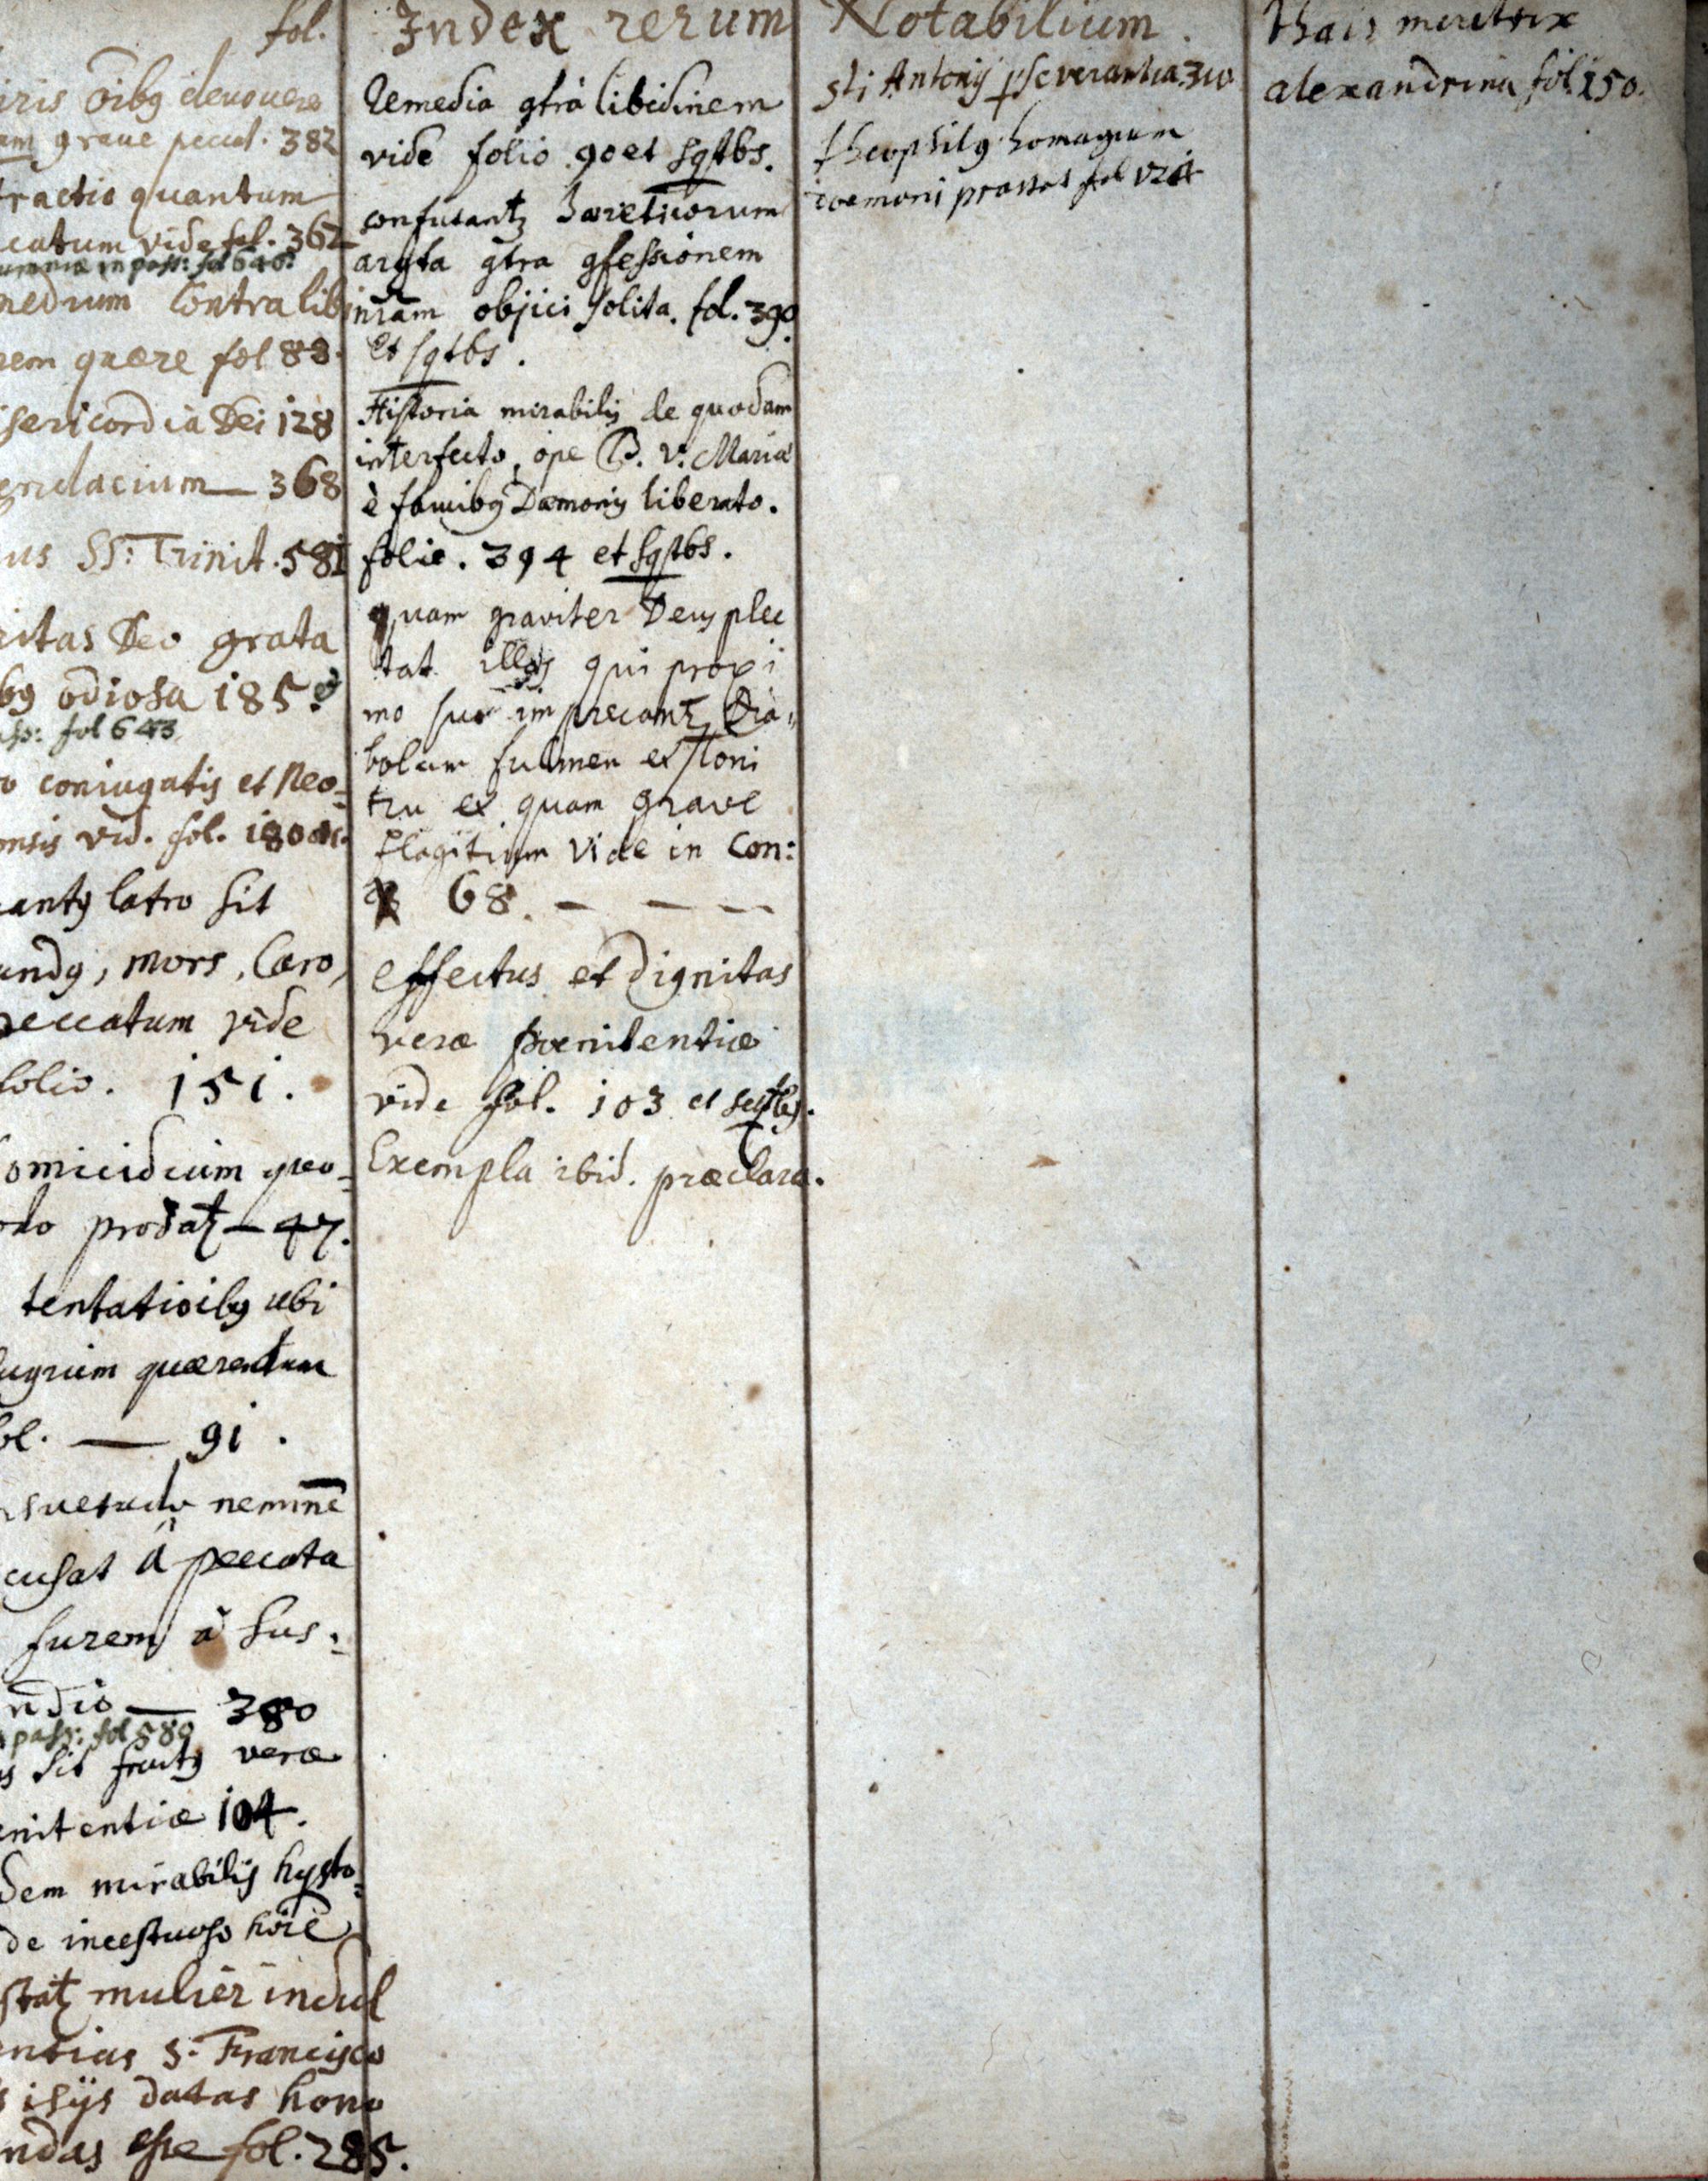 fol.
oibg devovere
grave peccat. 382
tractio quantum
catum vide fol. 362
in pass: fol 646.
medium Contra lib
rem quære fol 88.
sericordia Dei 128
endacium — 368
us SS: Trinit. 581
ritas Deo grata
bg odiosa 185.
ss: fol 643
o coniugatis et Neo-
ensis vid. fol. 180
antg latro sit
undg, mors, Caro,
peccatum vide
folio. 151.
omicidium quo-
odo prodat — 47.
tentatioibg ubi
fugium quærendum
ol. — 91.
suetudo neminē
cusat à peccata
furem à sus-
ndio — 380
pass: fol 589
sit fructg veræ
enitentiæ 104.
dem mirabilis hysto-
de incestuoso hoie
mulier indul
entias S. Francisco
isijs datas hono
ndas esse fol. 285.
Index rerum
Remedia gtra libidinem
vide folio 90 et sqtbs.
confutant hæreticorum
argta gtra gfessionem
nram objici solita. fol. 390
et sqtbs.
Historia mirabilis de quodam
interfecto, ope B. V. Maria
è faucibg Dæmonis liberato.
folio. 394 et sqtbs.
quam graviter Deus plec
tat illos qui proxi
mo suo imprecant Dia-
bolum fulmen et toni
tru et quam grave
flagitium vide in Con:
68. — — —
effectus et dignitas
veræ pœnitentiæ
vide fol. 103 et
Exempla ibid. præclara.
Notabilium.
sti Antonij pseverantia 310
theophilg homagium
dæmoni prastat fol
thais meretrix
alexandrina fol 150.